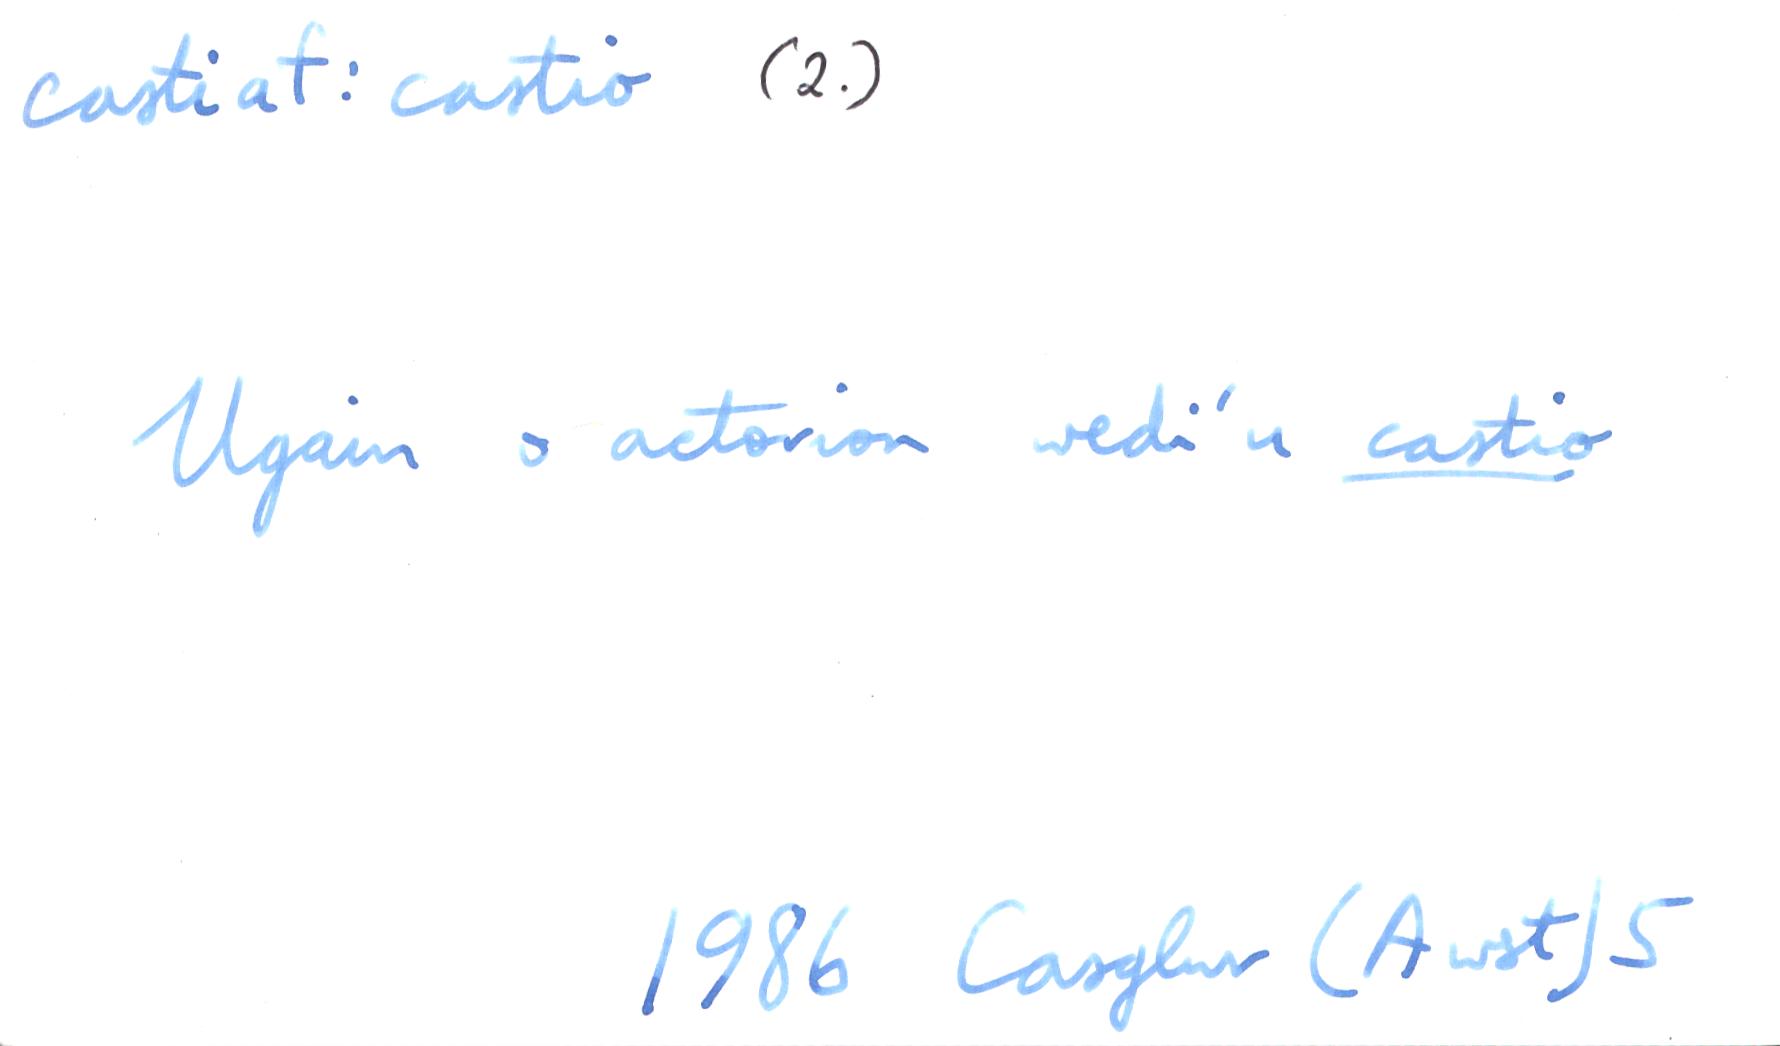 castiaf: castio (2.)
Ugain o actorion wedi'u castio
1986 Casglwr (Awst) 5